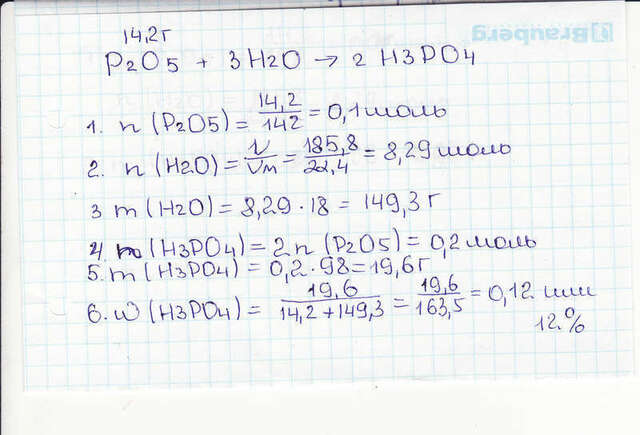 14,2г
P2O5 + 3H2O → 2 H3PO4
1. n (P2O5) = 14,2/142 = 0,1 моль
2. n (H2O) = V/Vm = 185,8/22,4 = 8,29 моль
3 m (H2O) = 8,29 · 18 = 149,3 г
4. n (H3PO4) = 2n (P2O5) = 0,2 моль
5. m (H3PO4) = 0,2 · 98 = 19,6 г
6. w (H3PO4) = 19,6/14,2 + 149,3 = 19,6/163,5 = 0,12 или
12%
Brauberg